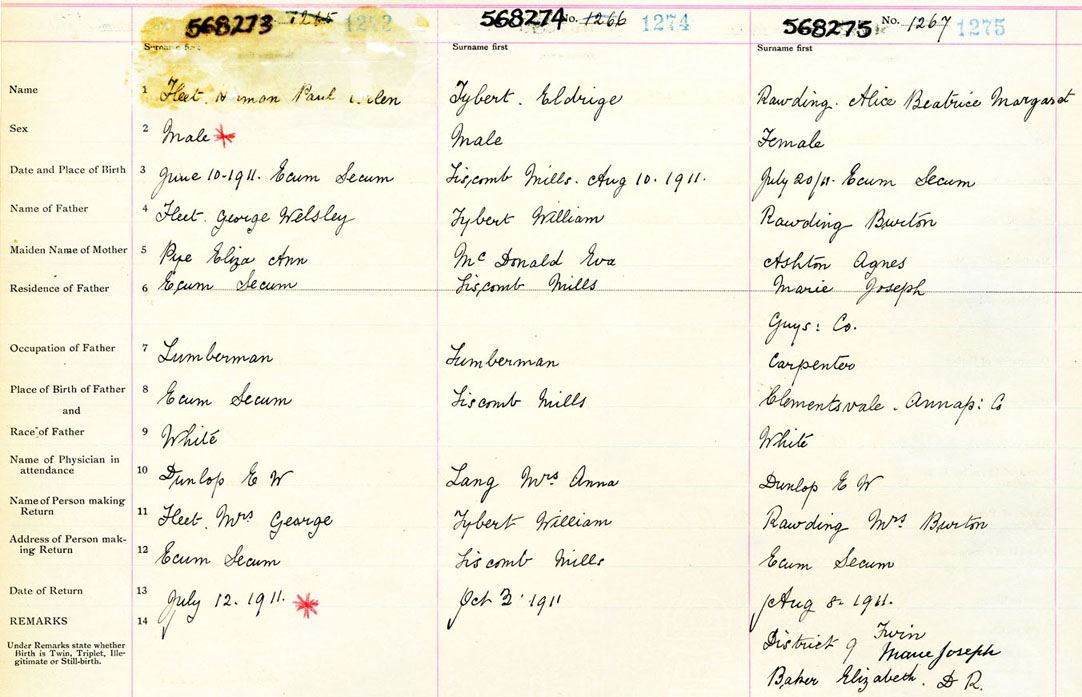 568273 1265 1273 568274 No. 1266 1274 568275 No. 1267 1275
Surname first Surname first Surname first
Name 1 Fleet. Paul Tybert. Eldrige Rawding. Alice Beatrice Margaret
Sex 2 Male Male Female
Date and Place of Birth 3 June 10-1911. Ecum Secum Liscomb Mills. Aug 10. 1911. July 20/11. Ecum Secum
Name of Father 4 Fleet. George Welsley Tybert William Rawding Burton
Maiden Name of Mother 5 Pye Eliza Ann Mc Donald Eva Ashton Agnes
Residence of Father 6 Ecum Secum Liscomb Mills Marie Joseph
Guys: Co.
Occupation of Father 7 Lumberman Lumberman Carpenter
Place of Birth of Father 8 Ecum Secum Liscomb Mills Clementsvale. Annap: Co
and
Race of Father 9 White White
Name of Physician in
attendance 10 Dunlop E W Lang Mrs Anna Dunlop E W
Name of Person making
Return 11 Fleet. Mrs George Tybert William Rawding Mrs Burton
Address of Person mak-
ing Return 12 Ecum Secum Liscomb Mills Ecum Secum
Date of Return 13 July 12. 1911. Oct 3. 1911 Aug 8. 1911.
REMARKS 14
Under Remarks state whether
Birth is Twin, Triplet, Ille-
gitimate or Still-birth.
Twin
District of Marie Joseph
Baker Elizabeth. D R.